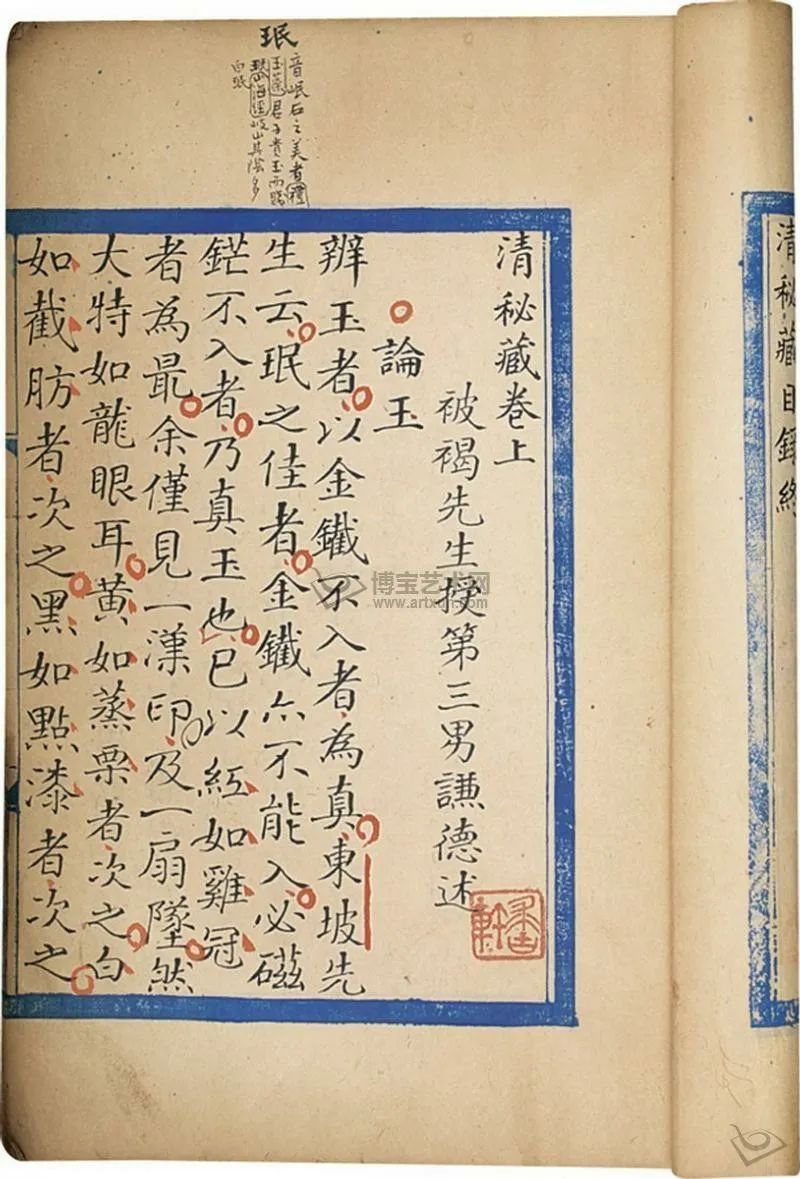 清秘藏目錄終
珉
音岷石之美者禮
玉藻君子貴玉而賤
珉山海經岐山其陰多
白珉
清秘藏卷上
被褐先生授第三男謙德述
論玉
辨玉者以金鐵不入者為真東坡先
生云珉之佳者金鐵亦不能入必磁
鋩不入者乃真玉也已以紅如雞冠
者為最余僅見一漢印及一扇墜然
大特如龍眼耳黃如蒸栗者次之白
如截肪者次之黑如點漆者次之
博宝艺术网
www.artxun.com